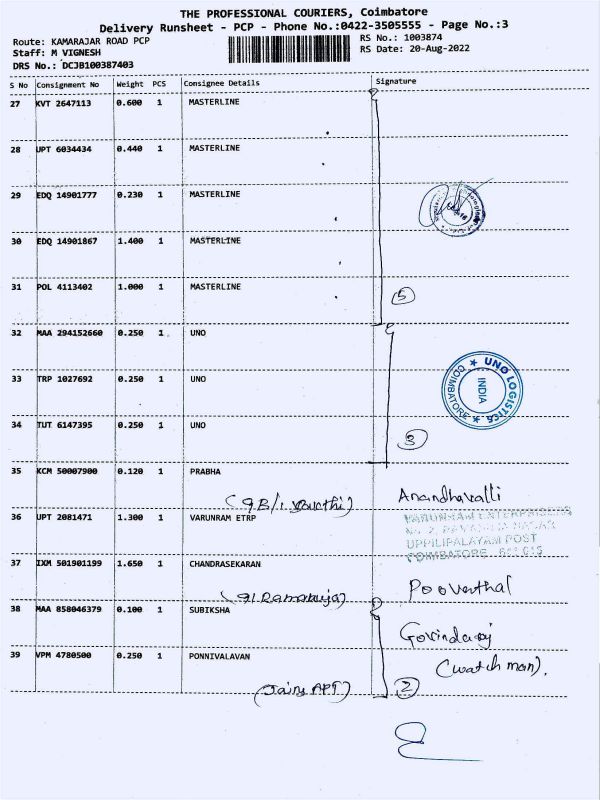 THE PROFESSIONAL COURIERS, Coimbatore
Delivery Runsheet - PCP - Phone No.:0422-3505555 - Page No.:3
Route: KAMARAJAR ROAD PCP
RS No.: 1003874
Staff: M VIGNESH
RS Date: 20-Aug-2022
DRS No.: DCJB100387403
S No Consignment No Weight PCS Consignee Details Signature
27 KVT 2647113 0.600 1 MASTERLINE
28 UPT 6034434 0.440 1 MASTERLINE
29 EDQ 14901777 0.230 1 MASTERLINE
30 EDQ 14901867 1.400 1 MASTERLINE
31 POL 4113402 1.000 1 MASTERLINE
5
32 MAA 294152660 0.250 1 UNO
33 TRP 1027692 0.250 1 UNO
UNO LOGISTICS
INDIA
COIMBATORE
34 TUT 6147395 0.250 1 UNO
3
35 KCM 50007900 0.120 1 PRABHA
Anandhavalli
36 UPT 2081471 1.300 1 VARUNRAM ETRP
VARUNRAM ENTERPRISERS
UPPILIPALAYAM POST
COIMBATORE 641 015
37 IXM 501901199 1.650 1 CHANDRASEKARAN
38 MAA 858046379 0.100 1 SUBIKSHA
Govindaraj
39 VPM 4780500 0.250 1 PONNIVALAVAN
(watch man).
(Jains APT)
2